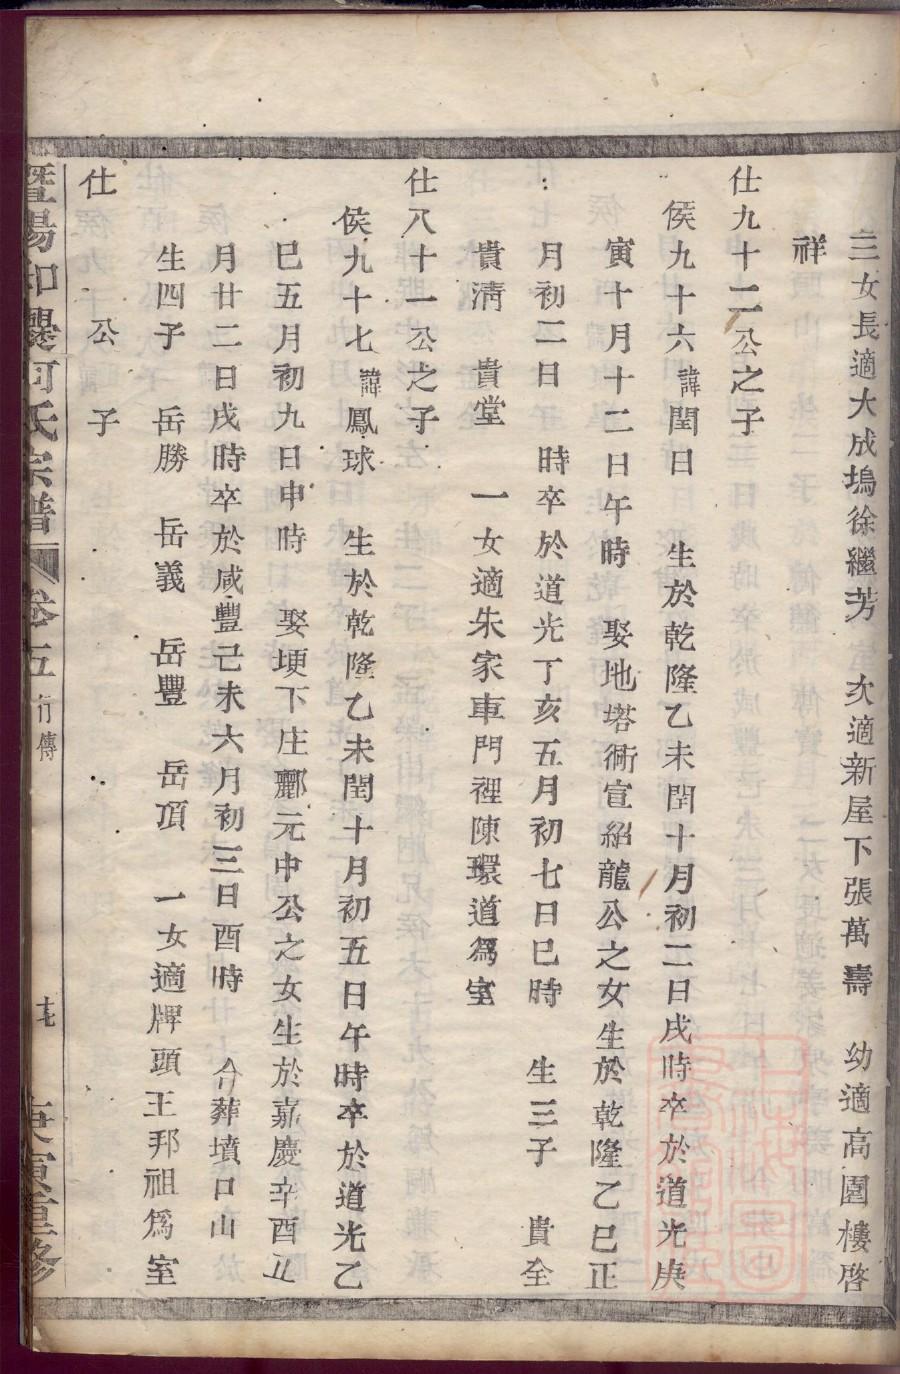 三女長適大成塢徐繼芳 次適新屋下張萬壽 幼適高園樓啓
祥
仕九十二公之子
侯九十六諱閏日 生於乾隆乙未閏十月初二日戌時卒於道光庚
寅十月十二日午時 娶地塔衕宣紹龍公之女生於乾隆乙巳正
月初二日 時卒於道光丁亥五月初七日巳時 生三子 貴全
貴淸 貴堂 一女適朱家車門裡陳環道爲室
仕八十一公之子
侯九十七諱鳳球 生於乾隆乙未閏十月初五日午時卒於道光乙
巳五月初九日申時 娶埂下庄酈元中公之女生於嘉慶辛酉正
月廿二日戌時卒於咸豐己未六月初三日酉時 合葬墳口山
生四子 岳勝 岳義 岳豐 岳頂 一女適牌頭王邦祖爲室
仕 公 子
暨陽和瓔何氏宗譜 卷五 行傳 庚寅重修